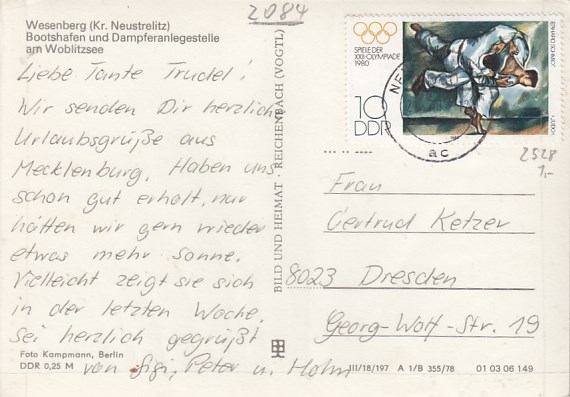 2084
Wesenberg (Kr. Neustrelitz)
Bootshafen und Dampferanlegestelle
am Woblitzsee
Liebe Tante Trudel!
Wir senden Dir herzlich
Urlaubsgrüße aus
Mecklenburg. Haben uns
schon gut erholt, nur
hätten wir gern wieder
etwas mehr Sonne.
Vielleicht zeigt sie sich
in der letzten Woche.
Sei herzlich gegrüßt
von Gigi, Peter u.
Foto Kampmann, Berlin
DDR 0,25 M
BILD UND HEIMAT REICHENBACH (VOGTL)
SPIELE DER
XXII. OLYMPIADE
1980
10
DDR
NE
ac
2528
1,-
Frau
Gertrud Ketzer
8023 Dresden
Georg-Wolf-Str. 19
III/18/197 A 1/B 355/78 01 03 06 149